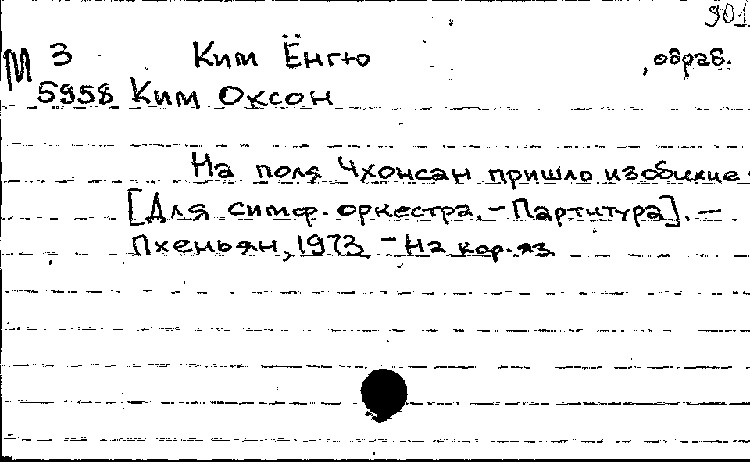 901
М 3 Ким Ёнгю , обраб.
5958 Ким Оксон
На поля Чхонсан пришло изобилие.
[Для симф. оркестра. – Партитура]. –
Пхеньян, 1973 – На кор. яз.